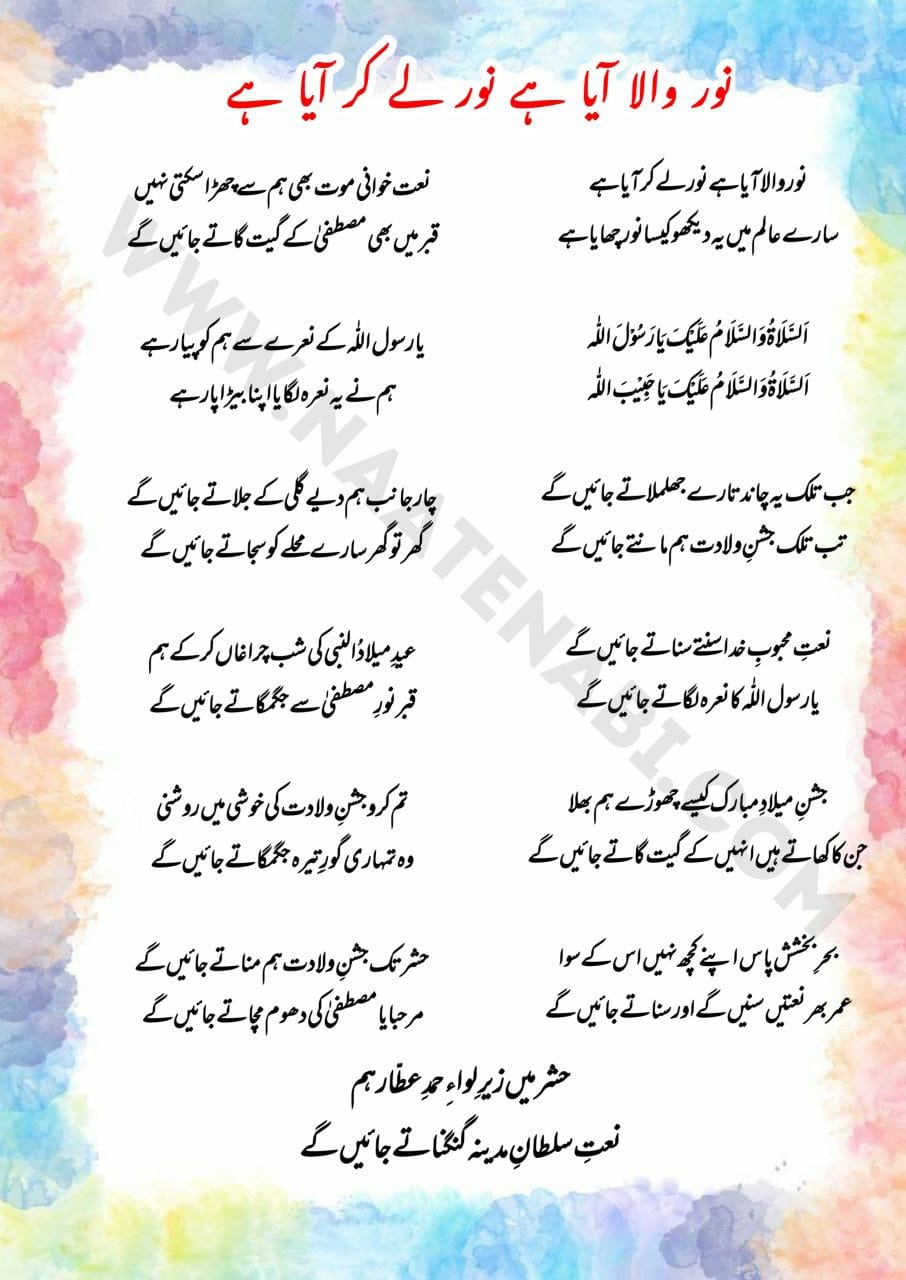 نور والا آیا ہے نور لے کر آیا ہے
نور والا آیا ہے نور لے کر آیا ہے
سارے عالم میں یہ دیکھو کیسا نور چھایا ہے
اَلسَّلَاۃُ وَالسَّلَامُ عَلَیْکَ یَا رَسُوْلَ اللّٰہ
اَلسَّلَاۃُ وَالسَّلَامُ عَلَیْکَ یَا حَبِیْبَ اللّٰہ
جب تلک یہ چاند تارے جھلملاتے جائیں گے
تب تلک جشنِ ولادت ہم مانتے جائیں گے
نعتِ محبوبِ خدا سنتے سناتے جائیں گے
یا رسول اللّٰہ کا نعرہ لگاتے جائیں گے
جشنِ میلادِ مبارک کیسے چھوڑے ہم بھلا
جن کا کھاتے ہیں انہیں کے گیت گاتے جائیں گے
بحرِ بخشش پاس اپنے کچھ نہیں اس کے سوا
عمر بھر نعتیں سنیں گے اور سناتے جائیں گے
نعت خوانی موت بھی ہم سے چھڑا سکتی نہیں
قبر میں بھی مصطفیٰ کے گیت گاتے جائیں گے
یا رسول اللّٰہ کے نعرے سے ہم کو پیار ہے
ہم نے یہ نعرہ لگایا اپنا بیڑا پار ہے
چار جانب ہم دیے گلی کے جلاتے جائیں گے
گھر تو گھر سارے محلے کو سجاتے جائیں گے
عیدِ میلادُ النبی کی شب چراغاں کر کے ہم
قبر نورِ مصطفیٰ سے جگمگاتے جائیں گے
تم کرو جشنِ ولادت کی خوشی میں روشنی
وہ تمہاری گورِ تیرہ جگمگاتے جائیں گے
حشر تک جشنِ ولادت ہم مناتے جائیں گے
مرحبا یا مصطفیٰ کی دھوم مچاتے جائیں گے
حشر میں زیرِ لواءِ حمدِ عطّار ہم
نعتِ سلطانِ مدینہ گنگناتے جائیں گے
WWW.NAATENABI.COM